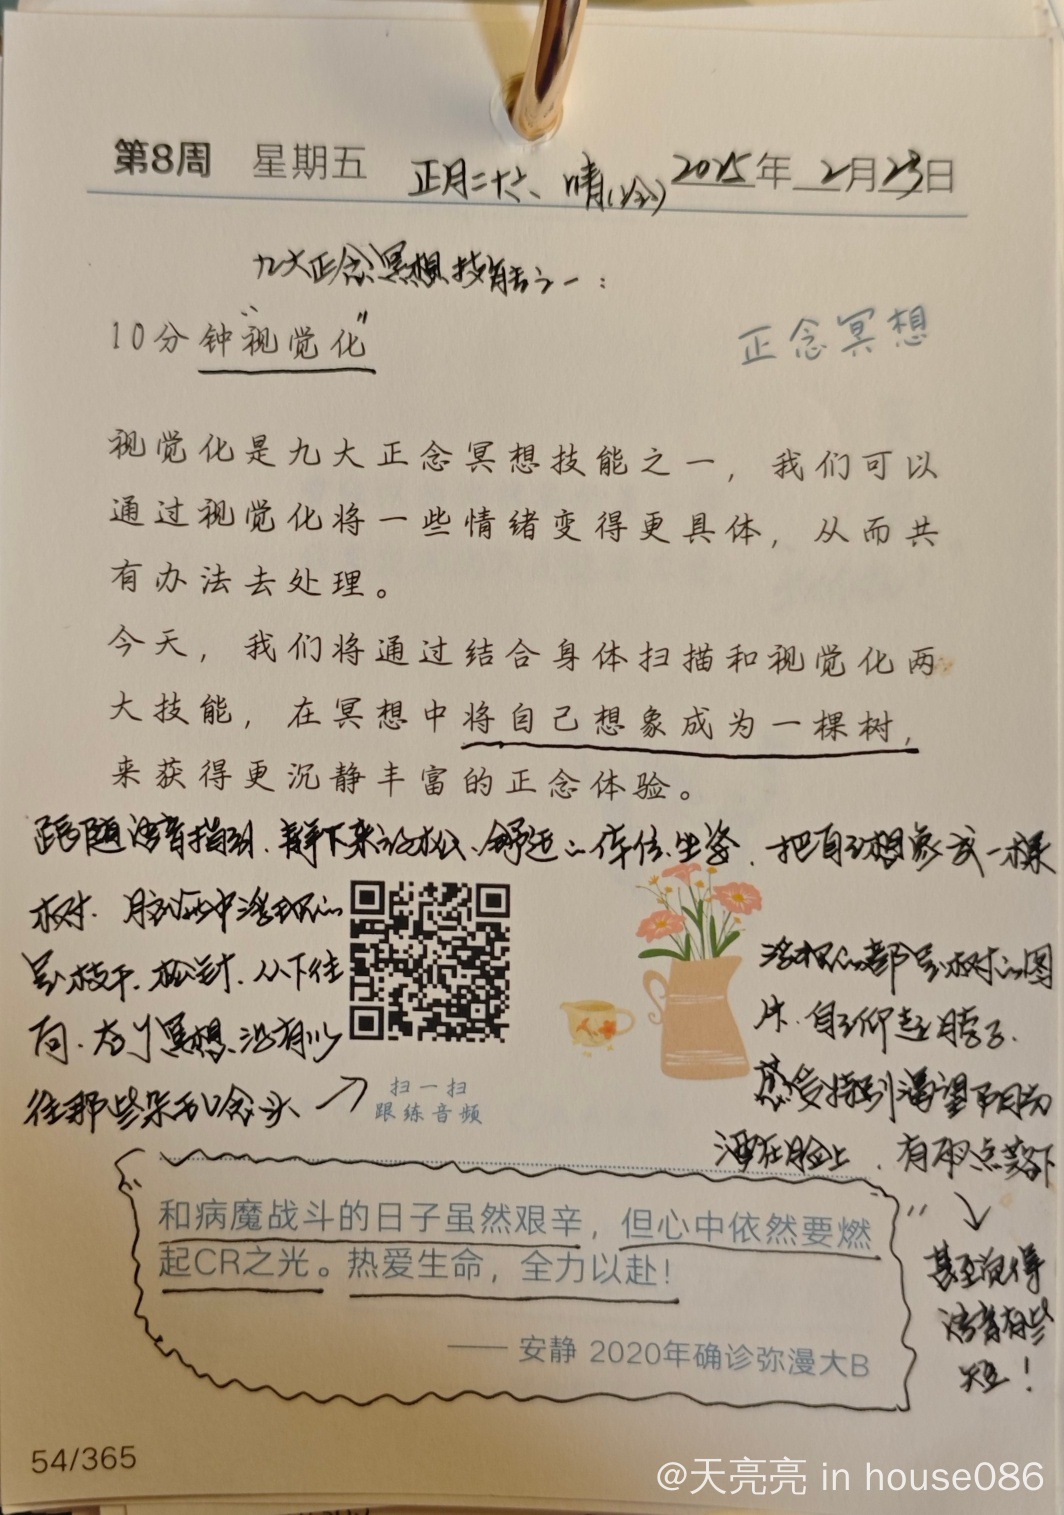 第8周 星期五 正月二十六、晴(冷) 2025年2月23日
九大正念冥想技能之一：
10分钟“视觉化”
正念冥想
视觉化是九大正念冥想技能之一，我们可以
通过视觉化将一些情绪变得更具体，从而共
有办法去处理。
今天，我们将通过结合身体扫描和视觉化两
大技能，在冥想中将自己想象成为一棵树，
来获得更沉静丰富的正念体验。
跟随语音指引、静下来放松、舒适的体位坐姿、把自己想象成一棵
树、脑海中浮现的
是枝干、松针、从下往
向、冥想、没有以
往那些杂乱念头
浮现的都是树的图
片、自己仰起脖子、
感受特别渴望阳光
洒在脸上、有雨点落下
甚至觉得
语音有些
短！
扫一扫
跟练音频
和病魔战斗的日子虽然艰辛，但心中依然要燃
起CR之光。热爱生命，全力以赴！
—— 安静 2020年确诊弥漫大B
54/365
@天亮亮 in house086